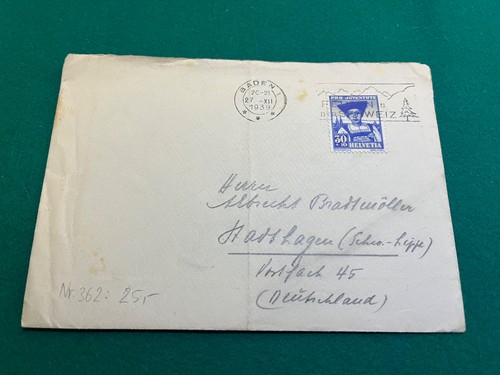 BADEN 1
20-21
27.-XII
1939
PRO JUVENTUTE
30
+10
HELVETIA
WEIZ
Herrn
Albrecht Bradtmöller
Stadthagen (Schm.-Lippe)
Postfach 45
(Deutschland)
Nr. 362: 25,-